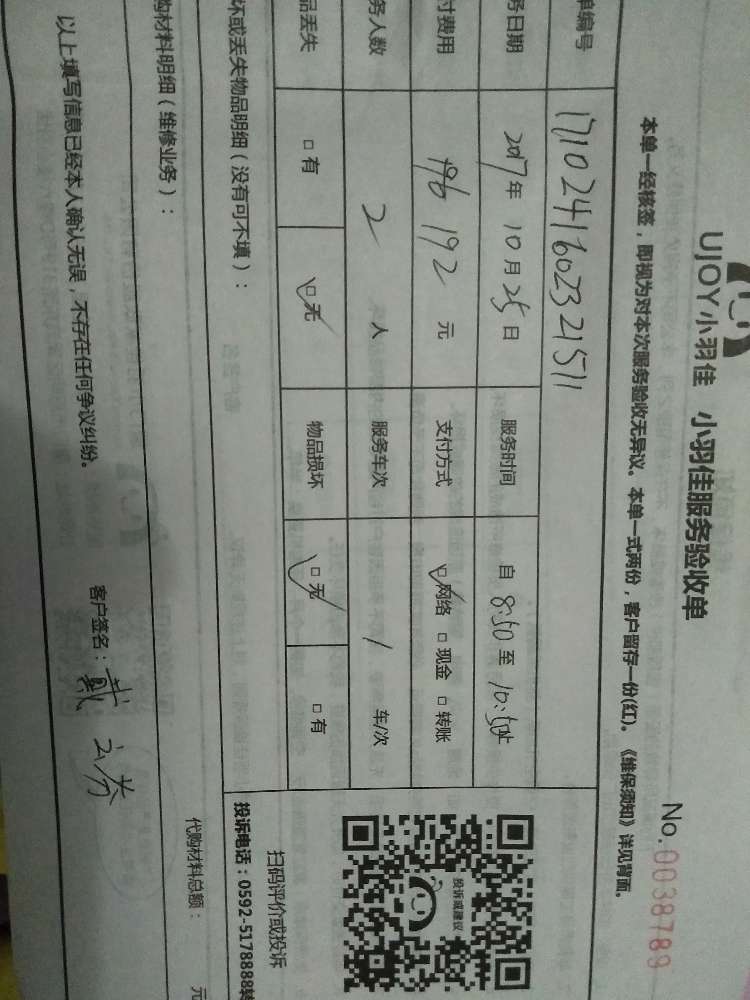 UJOY小羽佳 小羽佳服务验收单
No.0038789
本单一经核签，即视为对本次服务验收无异议。本单一式两份，客户留存一份(红)。《维保须知》详见背面。
单编号 1710241602321511
务日期 2017年 10月 25日 服务时间 自 8:50 至 10:50止
付费用 196 192 元 支付方式 ☑网络 □现金 □转账
务人数 2 人 服务车次 1 车/次
品丢失 □有 ☑无 物品损坏 ☑无 □有
坏或丢失物品明细（没有可不填）：
投诉或建议
扫码评价或投诉
投诉电话：0592-5178888转
购材料明细（维修业务）：
代购材料总额： 元
以上填写信息已经本人确认无误，不存在任何争议纠纷。
客户签名：戴